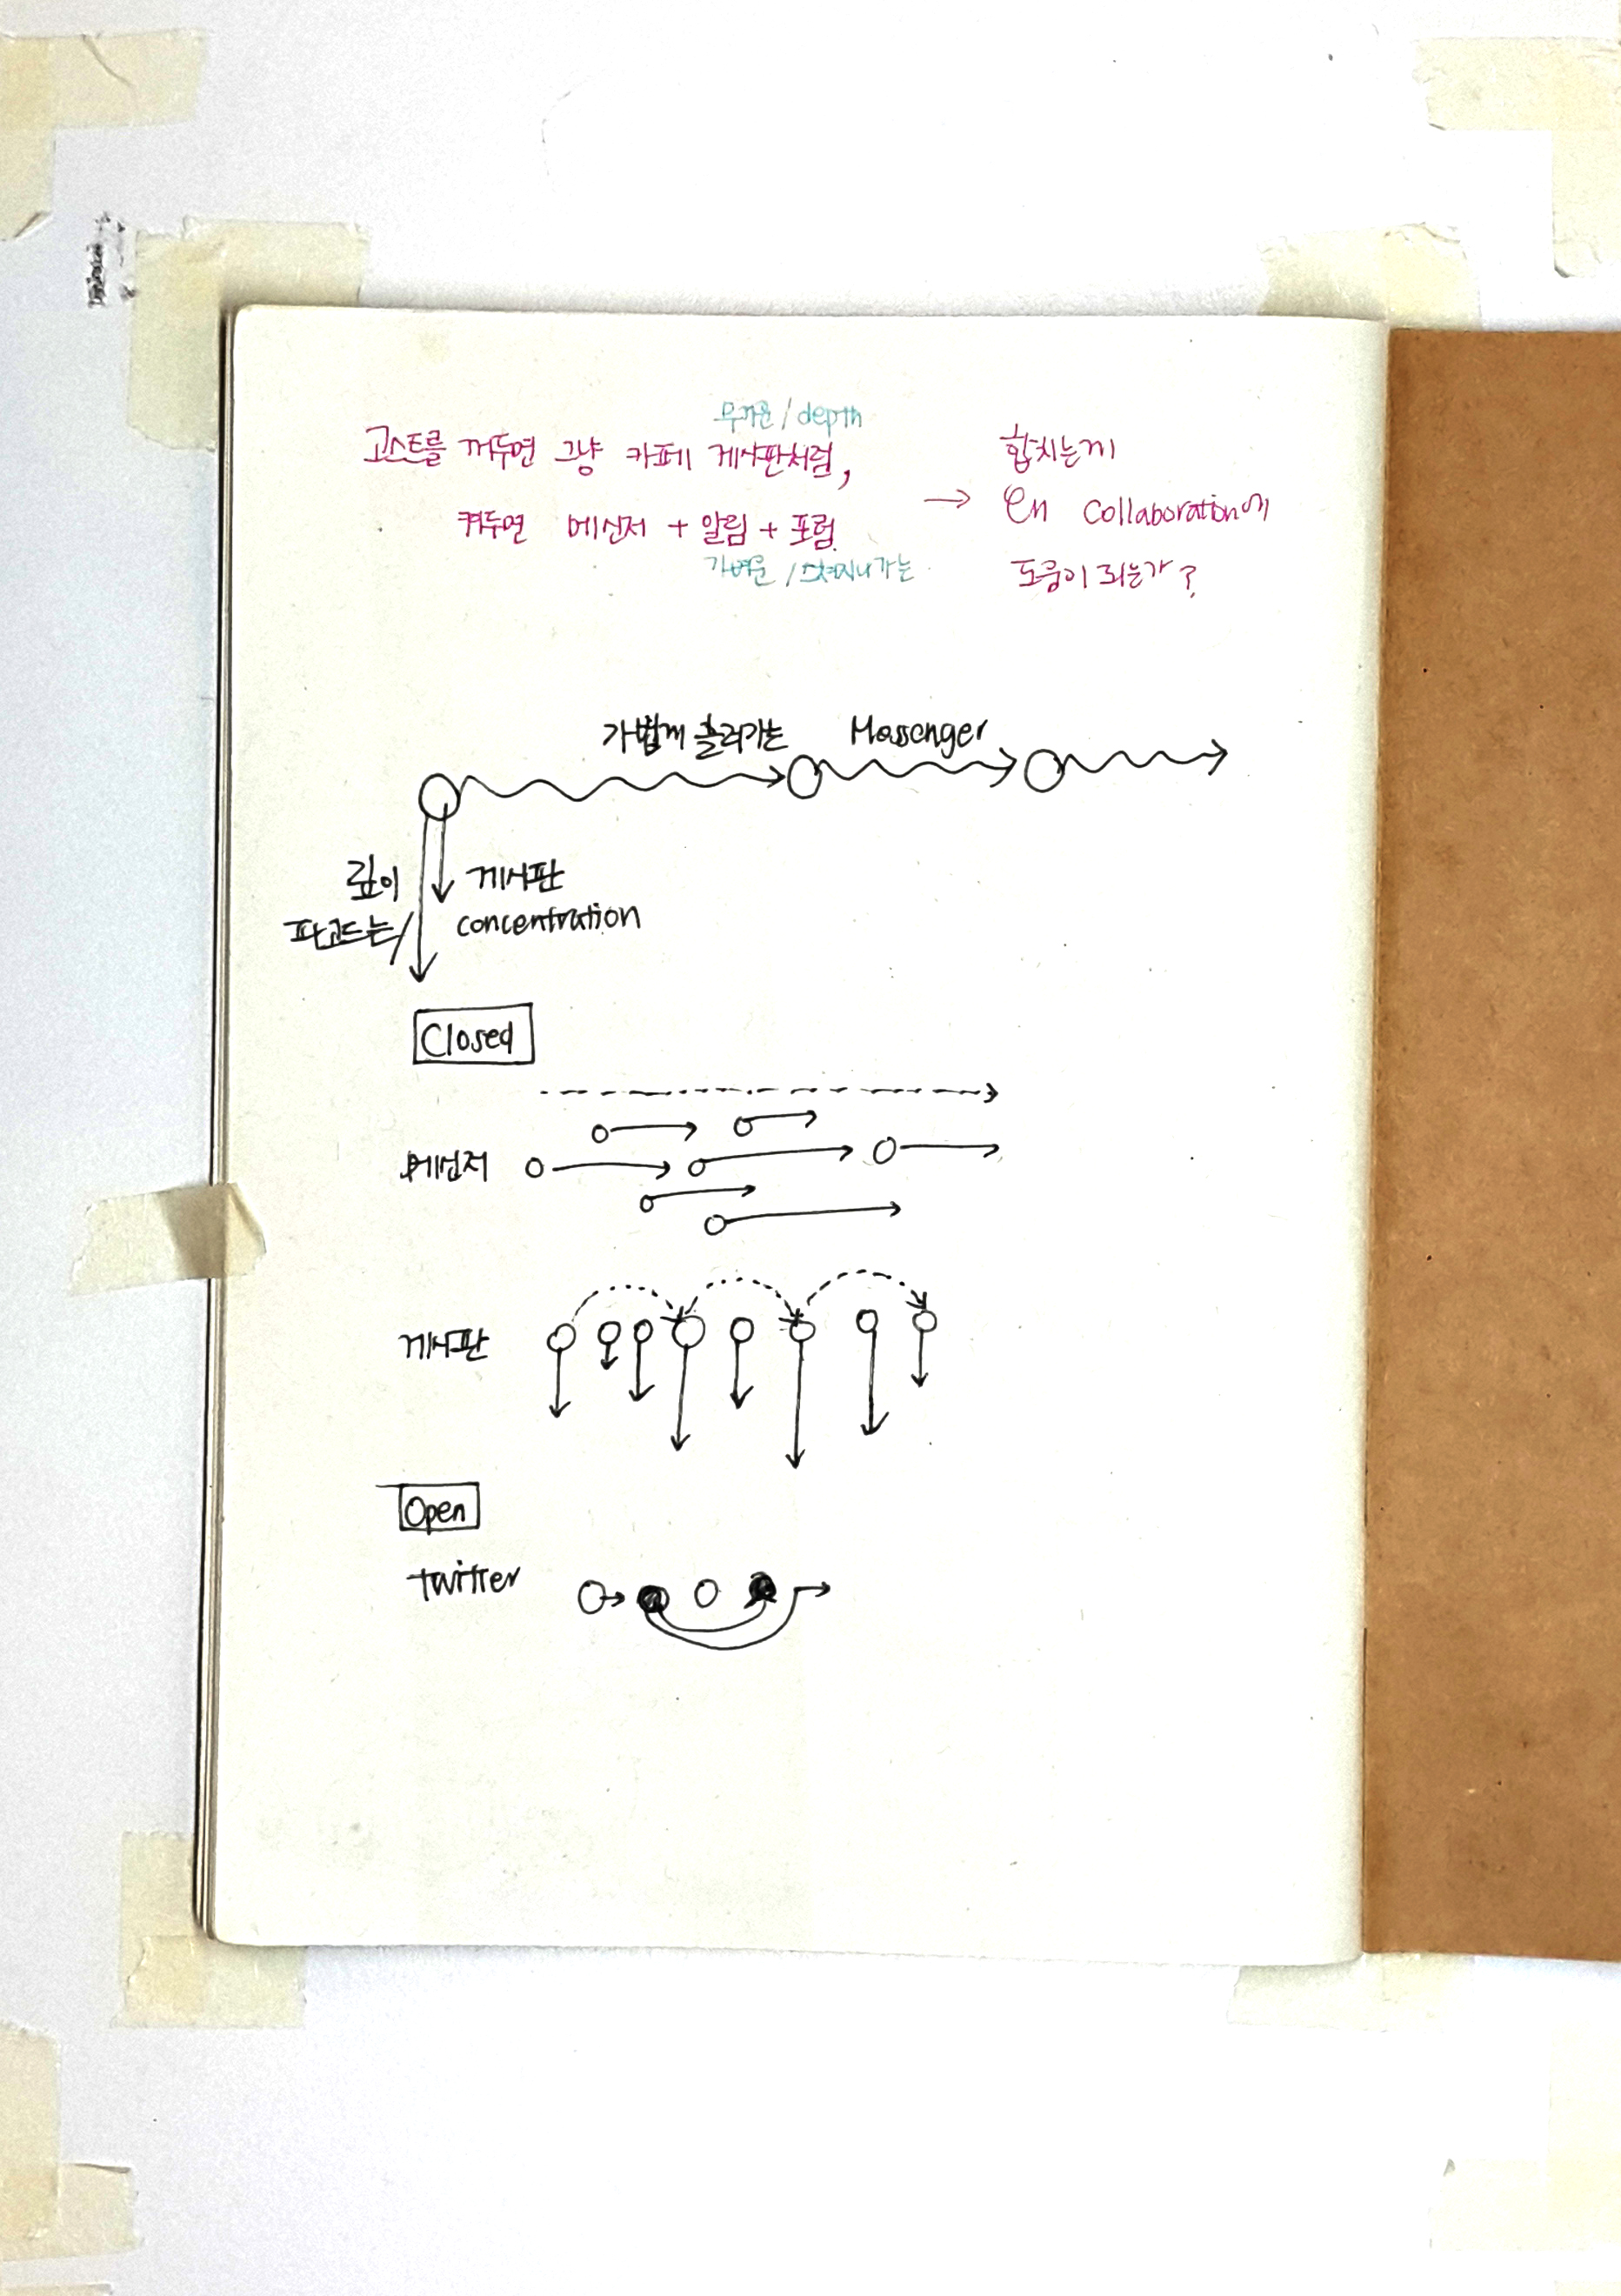 무거운 / depth
고스트를 꺼두면 그냥 카페 게시판처럼,
켜두면 메신저 + 알림 + 포럼
가벼운 / 스쳐지나가는
→ 합치는게
collaboration에
도움이 되는가?
가볍게 흘러가는 Messenger
깊이 게시판
파고드는 concentration
Closed
메신저
게시판
Open
twitter